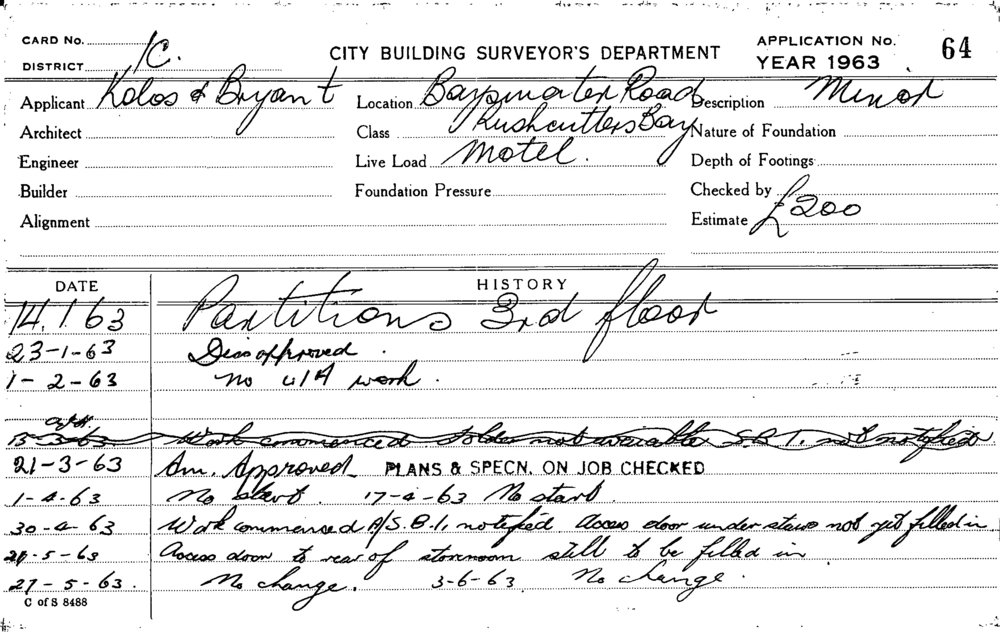 CARD No.
DISTRICT 1C.
CITY BUILDING SURVEYOR'S DEPARTMENT
APPLICATION No. 64
YEAR 1963
Applicant Kolos & Bryant Location Bayswater Road Description Minor
Architect Class Rushcutters Bay Nature of Foundation
Engineer Live Load Motel. Depth of Footings
Builder Foundation Pressure Checked by
Alignment Estimate £200
DATE HISTORY
14.1.63 Partitions 3rd floor
23-1-63 Disapproved.
1-2-63 no u/A work.
Work commenced folder not available S.B.I. not notified
21-3-63 Am. Approved PLANS & SPECN. ON JOB CHECKED
1-4-63 No start. 17-4-63 No start.
30-4-63 Work commenced A/S.B.I. notified Access door under stairs not yet filled in
-5-63 Access door to rear of storeroom still to be filled in
27-5-63. No change. 3-6-63 No change.
C of S 8488